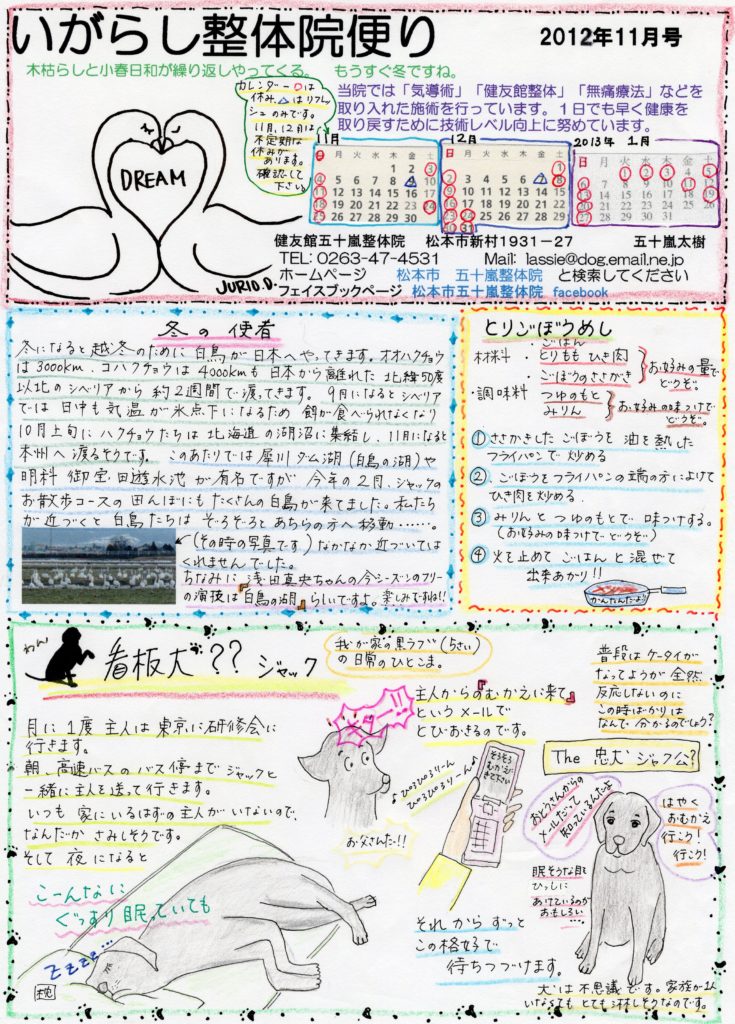 いがらし整体院便り
2012年11月号
木枯らしと小春日和が繰り返しやってくる。 もうすぐ冬ですね。
カレンダー○は
休み、△はリフレッ
シュのみです。
11月、12月は
不定期な
休みが
あります。
確認して
下さい。
当院では「気導術」「健友館整体」「無痛療法」などを
取り入れた施術を行っています。1日でも早く健康を
取り戻すために技術レベル向上に努めています。
DREAM
JURI.O.D.
11月
日 月 火 水 木 金 土
1 2 3
4 5 6 7 8 9 10
11 12 13 14 15 16 17
18 19 20 21 22 23 24
25 26 27 28 29 30
12月
日 月 火 水 木 金 土
1
2 3 4 5 6 7 8
9 10 11 12 13 14 15
16 17 18 19 20 21 22
23 24 25 26 27 28 29
30 31
2013年 1月
日 月 火 水 木 金 土
1 2 3 4 5
6 7 8 9 10 11 12
13 14 15 16 17 18 19
20 21 22 23 24 25 26
27 28 29 30 31
健友館五十嵐整体院 松本市新村1931－27 五十嵐太樹
TEL: 0263-47-4531 Mail: lassie@dog.email.ne.jp
ホームページ 松本市 五十嵐整体院 と検索してください
フェイスブックページ 松本市五十嵐整体院 facebook
冬の使者
冬になると越冬のために白鳥が日本へやってきます。オオハクチョウ
は3000km、コハクチョウは4000kmも日本から離れた北緯50度
以北のシベリアから約2週間で渡ってきます。9月になるとシベリア
では日中も気温が氷点下になるため餌が食べられなくなり
10月上旬にハクチョウたちは北海道の湖沼に集結し、11月になると
本州へ渡るそうです。このあたりでは犀川ダム湖(白鳥の湖)や
明科御宝田遊水池が有名ですが今年の2月、ジャックの
お散歩コースの田んぼにもたくさんの白鳥が来てました。私たち
が近づくと白鳥たちはぞろぞろとあちらの方へ移動……。
(その時の写真です)なかなか近づいては
くれませんでした。
ちなみに浅田真央ちゃんの今シーズンのフリー
の演技は『白鳥の湖』らしいですよ。楽しみですね!!
とりごぼうめし
材料 ・ごはん
・とりもも ひき肉
・ごぼうのささがき
お好みの量で
どうぞ。
・調味料 つゆのもと
みりん
お好みの味つけで
どうぞ。
① ささがきしたごぼうを油を熱した
フライパンで炒める
② ごぼうをフライパンの端の方によけて
ひき肉を炒める
③ みりんとつゆのもとで味つけする。
(お好みの味つけでどうぞ)
④ 火を止めてごはんと混ぜて
出来あがり!!
かんたんだよ
わん
看板犬?? ジャック
我が家の黒ラブ(5さい)
の日常のひとこま。
月に1度主人は東京に研修会に
行きます。
朝、高速バスのバス停までジャックと
一緒に主人を送って行きます。
いつも家にいるはずの主人がいないので、
なんだかさみしそうです。
そして夜になると
こーんなに
ぐっすり眠っていても
zzzz…
主人からの『むかえに来て』
というメールで
とびおきるのです。
お父さんだ!!
♪ぴろぴろりーん
ぴろぴろりーん♪
そろそろ
むかえに
きて下さい
普段はケータイが
なってようが全然
反応しないのに
この時ばかりは
なんで分かるのでしょう?
The 忠犬 ジャク公?
おとうさんからの
メールだって
知っているんだよ
はやく
おむかえ
行こう!
行こう!
眠そうな目を
ひっしに
あけているのが
おもしろい…
それからずっと
この格好で
待ちつづけます。
犬は不思議です。家族が1人
いなくてもとても淋しそうなのです。